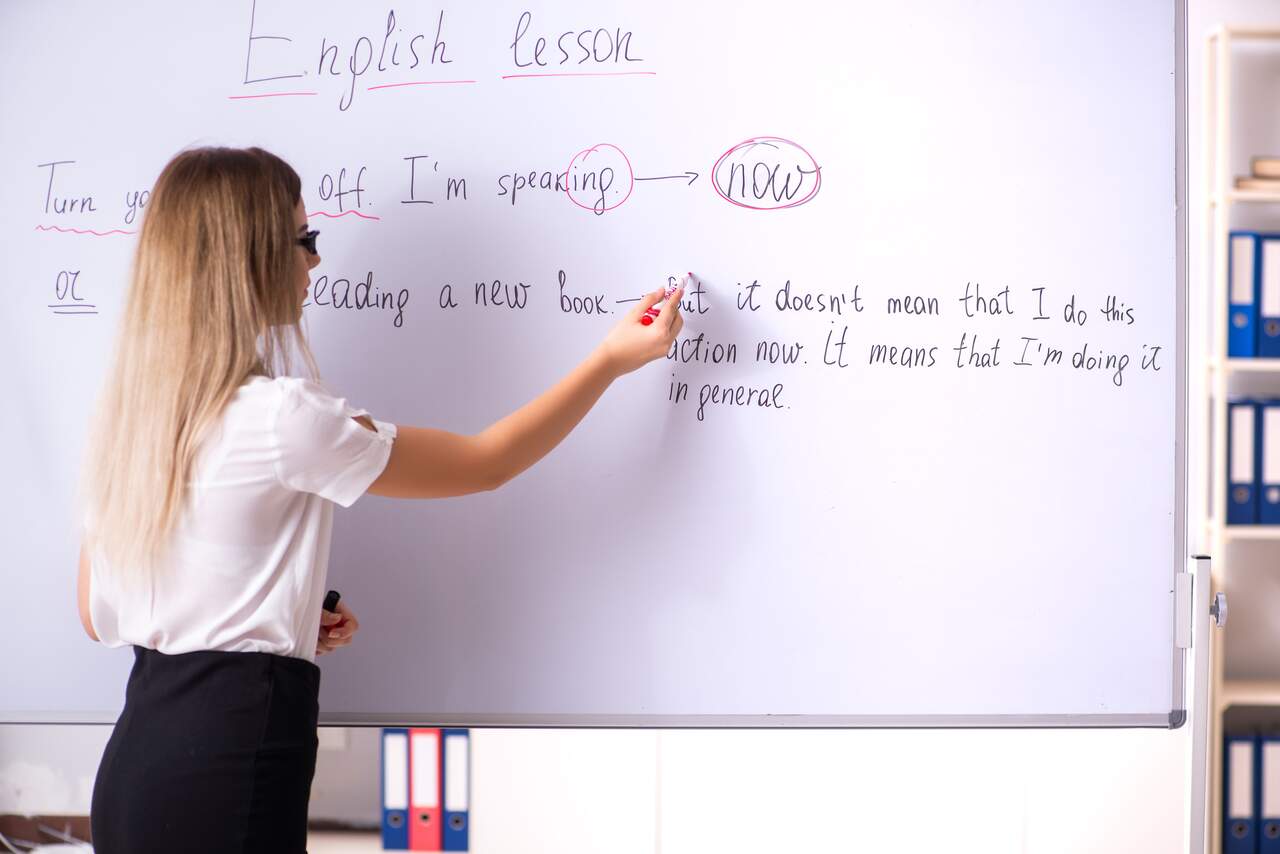 English lesson
Turn yo off. I'm speaking. → now
or eading a new book. — but it doesn't mean that I do this
action now. It means that I'm doing it
in general.